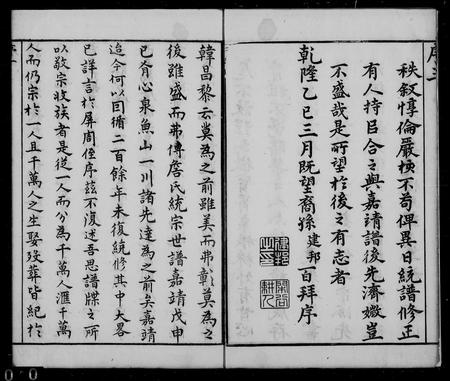 序三
秩叙惇倫嚴核不苟俾異日統譜修正
有人持吕合之與嘉靖譜後先濟媺豈
不盛哉是所望於後之有志者
乾隆乙巳三月既望裔孫建邦百拜序
韓昌黎云莫為之前雖美而弗彰莫為之
後雖盛而弗傳詹氏統宗世譜嘉靖戊申
已有心泉魚山一川諸先達為之前矣嘉靖
迨今何以因循二百餘年未復統修其中大畧
已詳言於屏周侄序茲不復述吾思譜牒之所
以敬宗收族者是從一人而分為千萬人滙千萬
人而仍宗於一人且千萬人之生娶殁葬皆紀於